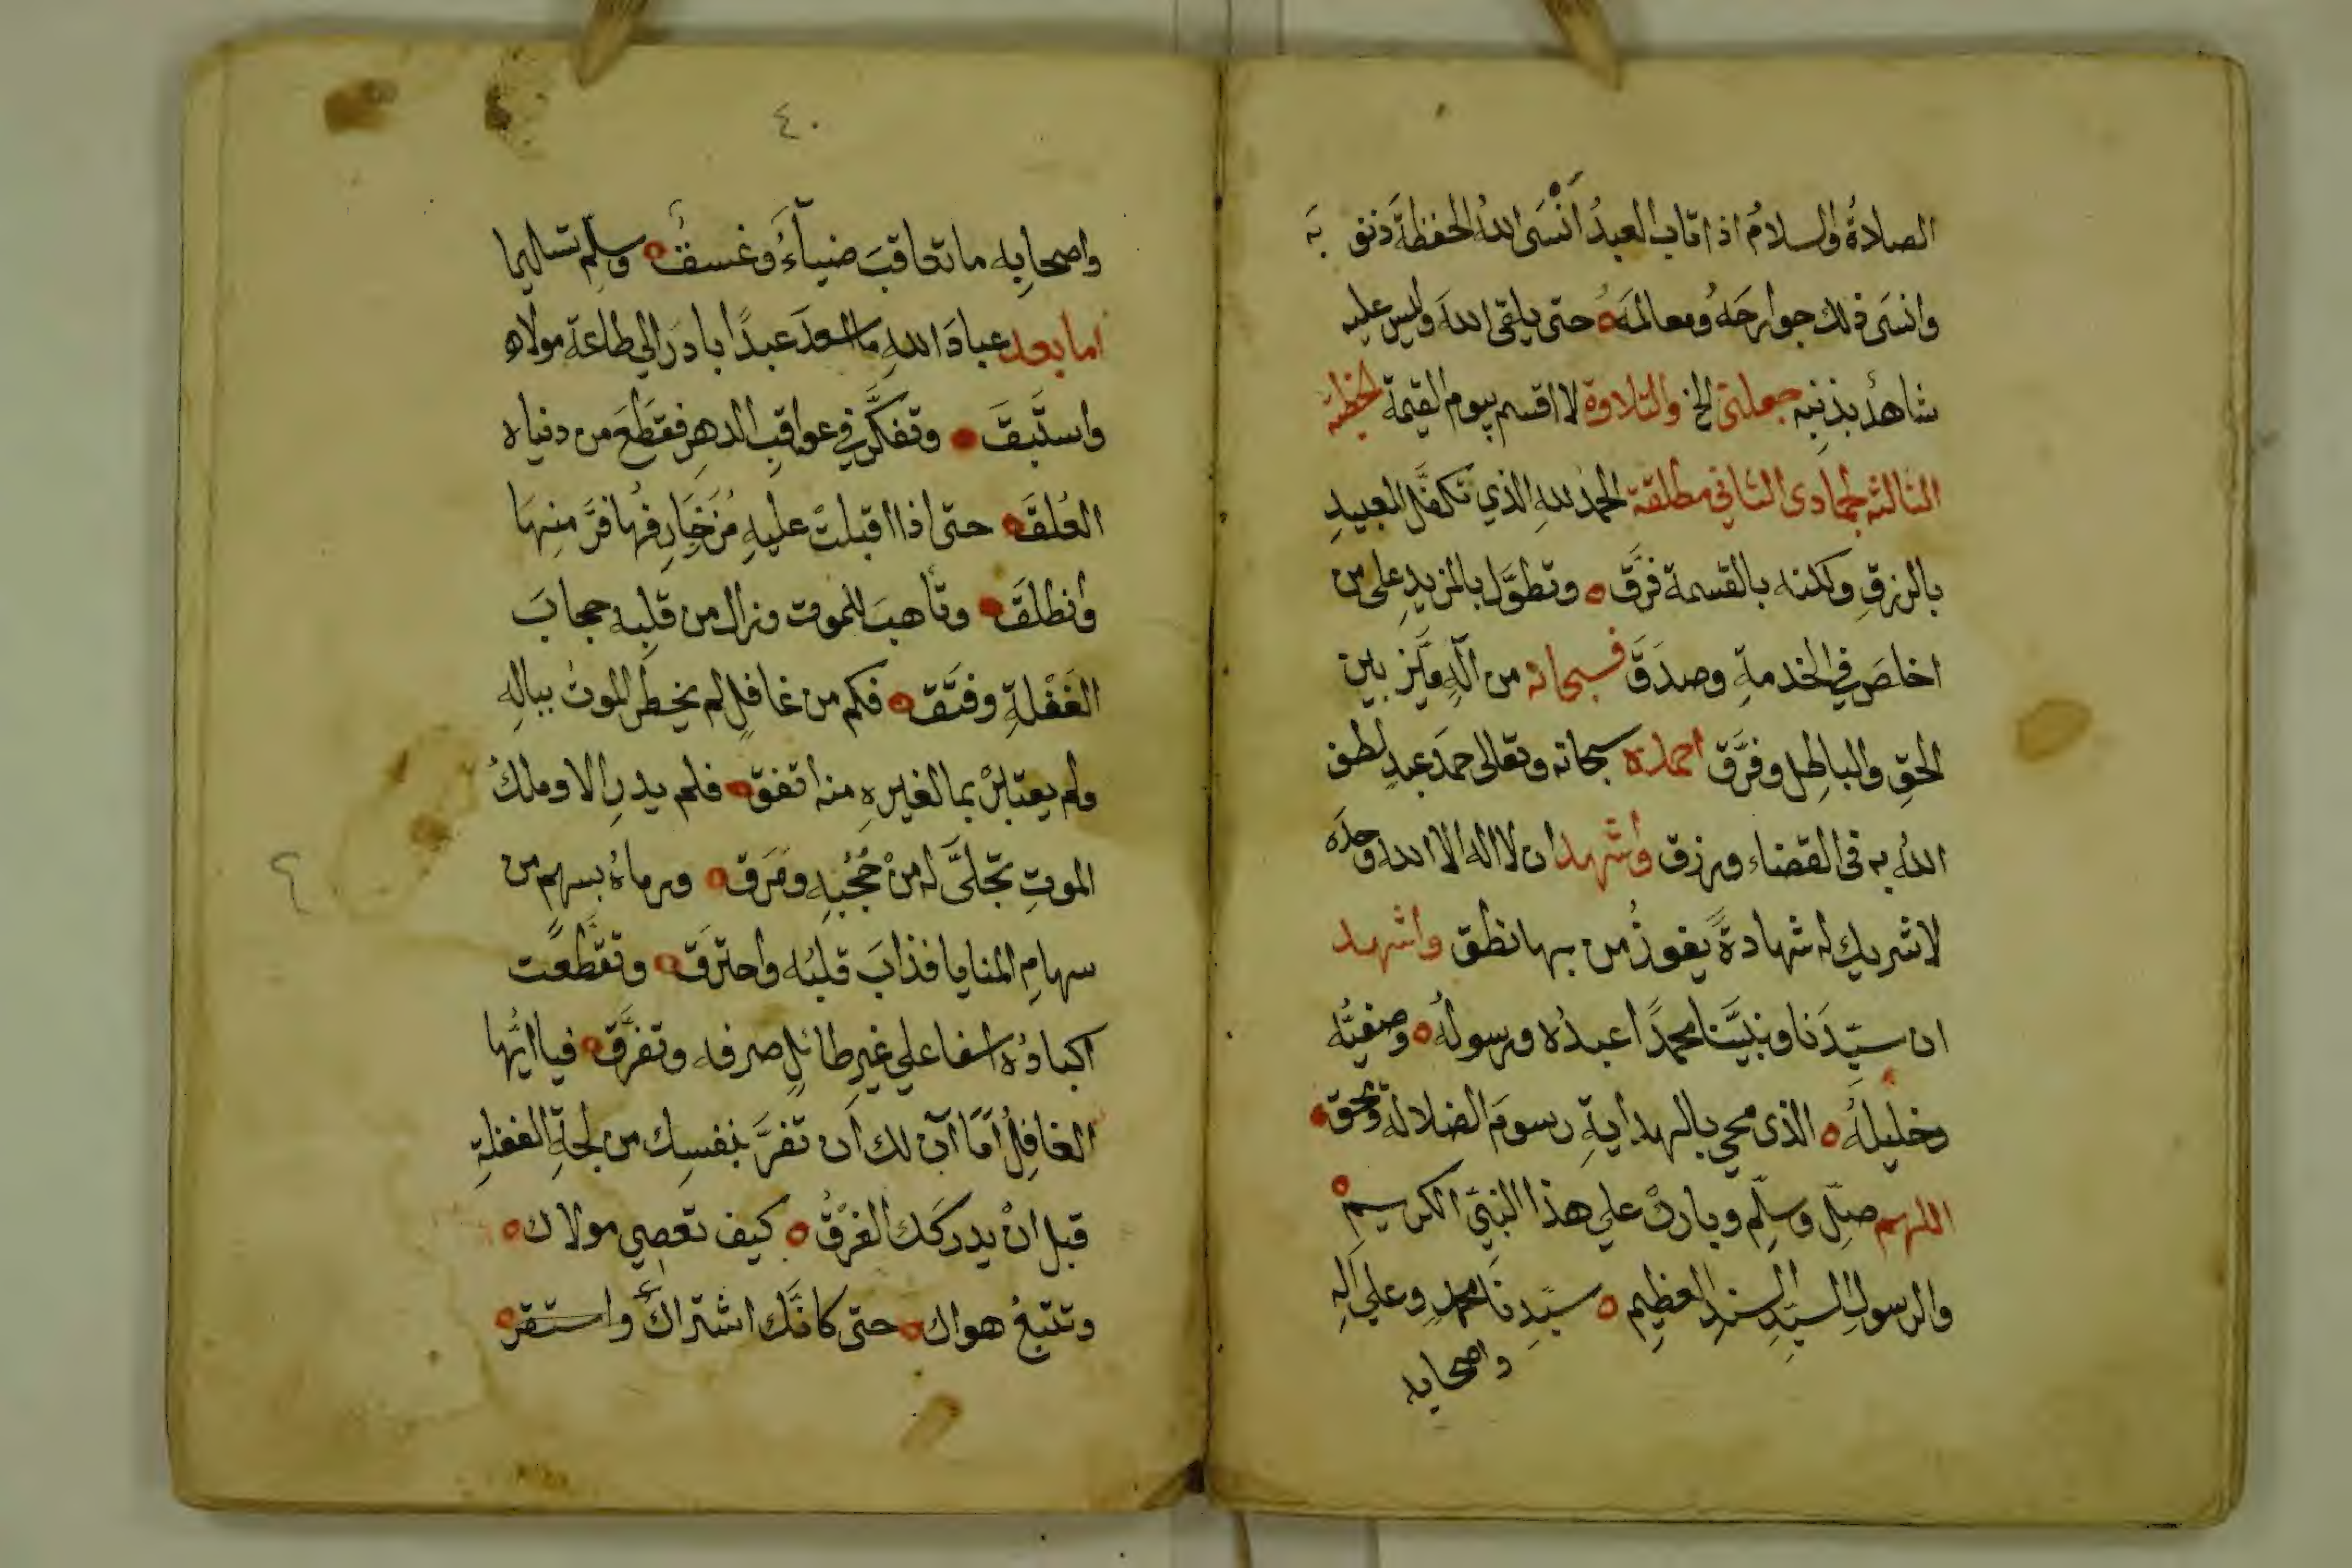 الصلاةُ والسلامُ اذا تاب العبدُ اَنْسَى اللهُ الحفظةَ ذنوبَه
وانسَى ذلك جوارحَهُ ومعالمَهُ حتى يلقى اللهَ وليس عليه
شاهدٌ بذنبِه جعلنى الخ والتلاوة لا اقسم بيوم القيمة الخطبة
الثالثة لجمادى الثاني مطلقة الحمد للهِ الذي تكفَّل للعبيدِ
بالرزقِ ولكنه بالقسمة فرَّق وتطوَّل بالمزيدِ على من
اخلصَ في الخدمةِ وصدَقَ فسبحانه من الٓهٍ ميَّز بين
الحقِ والباطِلِ وفرَّق احمده سبحانه وتعالى حمدَ عبدٍ لطف
اللهُ به في القضاء ورزق واشهد ان لا اله الا الله وحدَه
لا شريك له شهادةً يفوزُ من بها نطق واشهد
ان سيّدَنا ونبيَّنا محمدًا عبدُه ورسولُه وصفيُّه
وخليلُه الذى محي بالهدايةِ رسومَ الضلالة ومحق
اللهم صلِّ وسلِّم وباركْ علي هذا النبيِّ الكريمِ
والرسولِ السيّدِ السندِ العظيمِ سيّدِنا محمدٍ وعلي آلِه
واصحابه
٤٠
واصحابِه ما تعاقبَ ضياءٌ وغسقٌ وسلِّم تسليما
اما بعد عبادَ اللهِ ما اسعدَ عبدًا بادرَ الي طاعةِ مولاه
واستَبقَ وتفكَّر في عواقبِ الدهرِ فقطَعَ من دنياه
العُلقَ حتى اذا اقبلتْ عليهِ مُزَخارفُها فرَّ منها
وانطلقَ وتأهبَ للموت وزال من قلبِه حجابَ
الغَفْلةِ وفتَّقَ فكم من غافلٍ لم يخطُرِ الموتُ ببالِه
ولم يعتبرْ بما لغيرِه منه اتفق فلم يدرِ الا وملكُ
الموتِ تجلَّى له منْ حُجُبِه ومَرَق ورماهُ بسهمٍ من
سهامِ المنايا فذابَ قلبُه واحترَق وتقطَّعت
اكبادُه اسفا علي غيرِ طائلٍ صرفه وتفرَّق فيا ايُّها
الغافِلُ اَمَا آن لك اَن تفرَّ بنفسِك من لجةِ الغفلةِ
قبل انْ يدركَك الغرْقُ كيف تعصِي مولاك
وتتبعُ هواك حتى كانَّك اشتراكَ واستقر